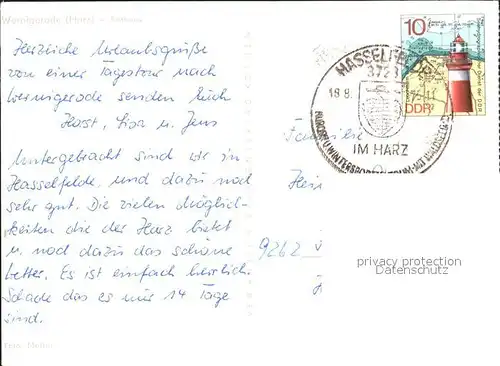 Wernigerode (Harz) - Rathaus
Herzliche Urlaubsgrüße
von einer Tagestour nach
Wernigerode senden Euch
Horst, Lisa u. Jens
Untergebracht sind wir in
Hasselfelde, und dazu noch
sehr gut. Die vielen Möglich-
keiten die der Harz bietet
u. noch dazu das schöne
Wetter. Es ist einfach herrlich.
Schade das es nur 14 Tage
sind.
10
DDR
HASSELFE
3723
18.8.
IM HARZ
Familie
Hei
9262
privacy protection
Datenschutz